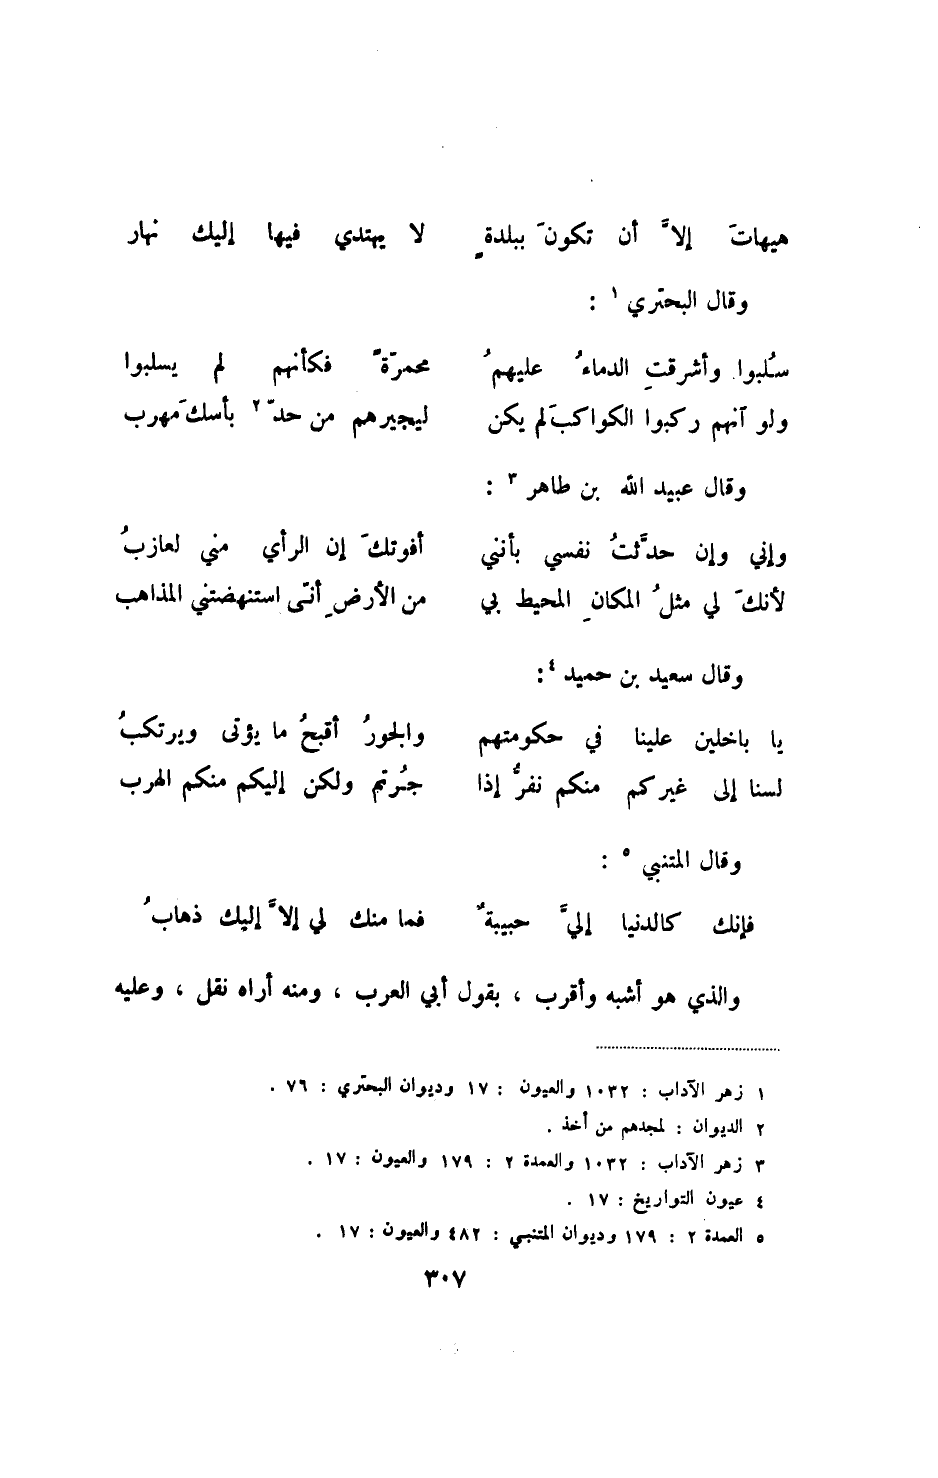 هيهاتَ إلاَّ أن تكونَ ببلدةٍ لا يهتدي فيها إليك نهار
وقال البحتري ١ :
سُلبوا وأشرقتِ الدماءُ عليهمُ محمرّةً فكأنهم لم يسلبوا
ولو آنهم ركبوا الكواكبَ لم يكن ليجيرهم من حدّ ٢ بأسك مَهرب
وقال عبيد الله بن طاهر ٣ :
وإني وإن حدَّثتُ نفسي بأنني أفوتكَ إن الرأي مني لعازبُ
لأنكَ لي مثلُ المكانِ المحيط بي من الأرضِ أنّى استنهضتني المذاهب
وقال سعيد بن حميد ٤ :
يا باخلين علينا في حكومتهم والجورُ أقبحُ ما يؤتى ويرتكبُ
لسنا إلى غيركم منكم نفرُّ إذا جُرتم ولكن إليكم منكم الهرب
وقال المتنبي ٥ :
فإنك كالدنيا إليَّ حبيبةٌ فما منك لي إلاَّ إليك ذهابُ
والذي هو أشبه وأقرب ، بقول أبي العرب ، ومنه أراه نقل ، وعليه
١ زهر الآداب : ١٠٣٢ والعيون : ١٧ وديوان البحتري : ٧٦ .
٢ الديوان : لمجدهم من أخذ .
٣ زهر الآداب : ١٠٣٢ والعمدة ٢ : ١٧٩ والعيون : ١٧ .
٤ عيون التواريخ : ١٧ .
٥ العمدة ٢ : ١٧٩ وديوان المتنبي : ٤٨٢ والعيون : ١٧ .
٣٠٧